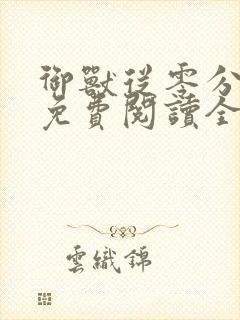 御獸從零分
免費閱讀全
雲織錦